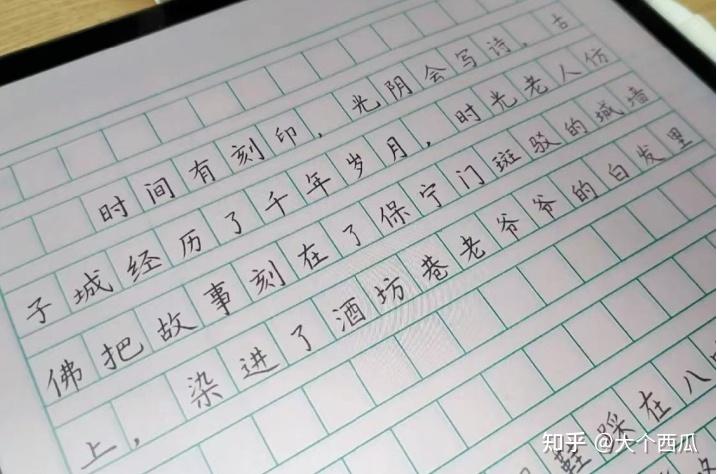 时间有刻印，光阴会写诗。古
子城经历了千年岁月，时光老人仿
佛把故事刻在了保宁门斑驳的城墙
上，染进了酒坊巷老爷爷的白发里
鞋踩在八
知乎 @大个西瓜